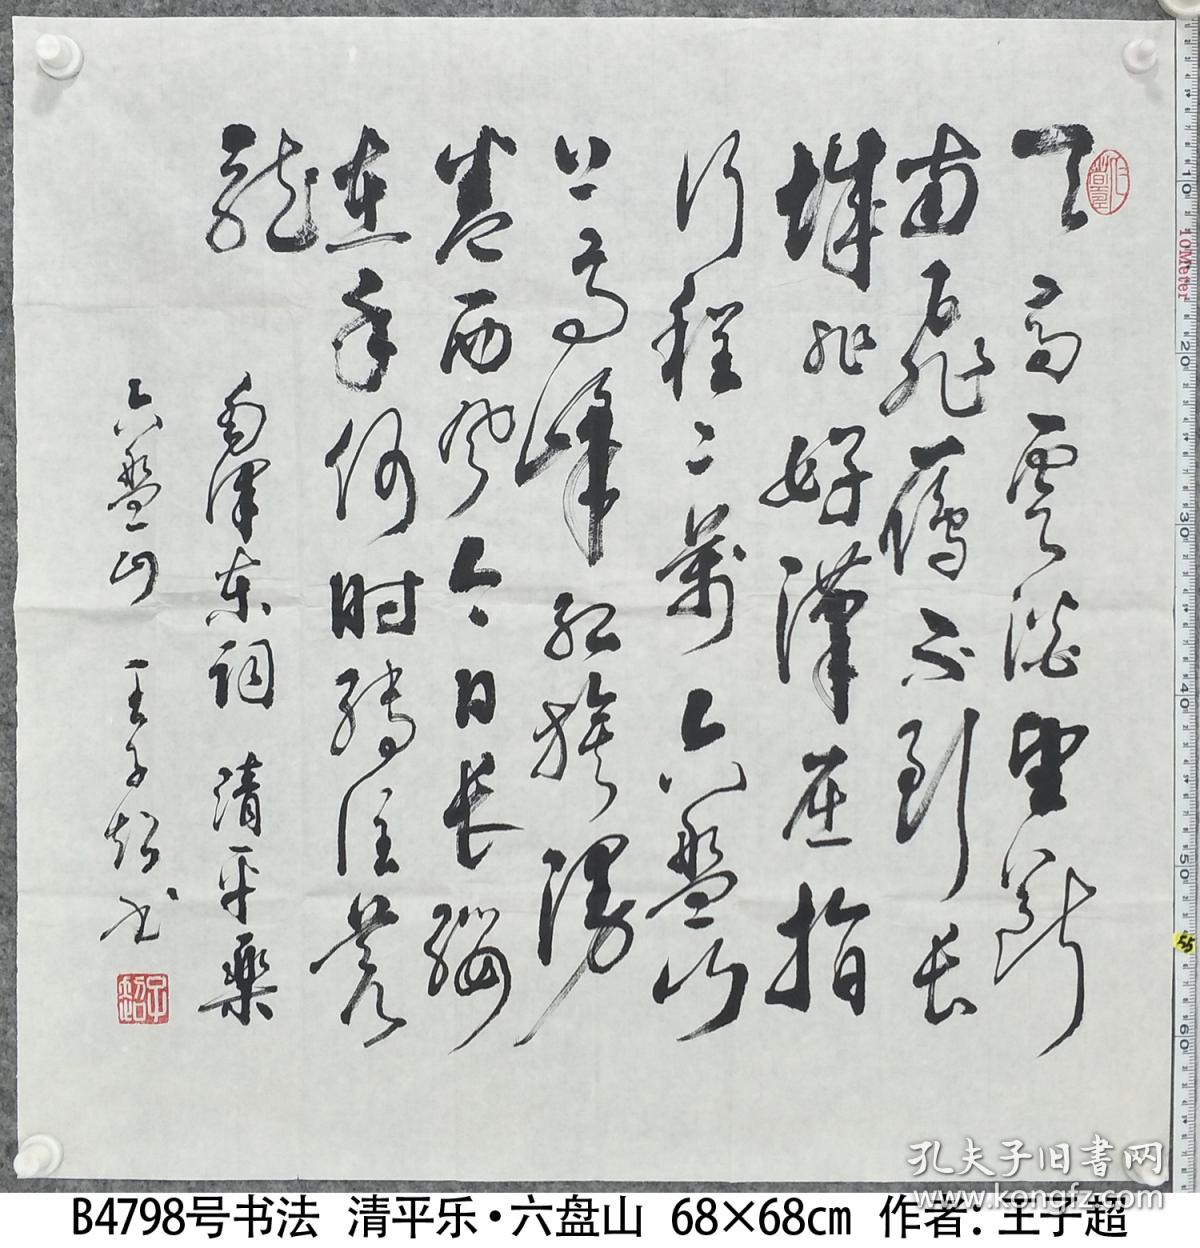 天高雲淡望斷
南飛雁不到长
城非好漢屈指
行程二萬六盤山
上高峰紅旗漫
卷西风今日长纓
在手何时縛住蒼
龍
毛澤東詞 清平樂
六盤山 王子超书
子超
10Meter
10
20
30
40
50
55
60
孔夫子旧书网
www.kongfz.com
B4798号书法 清平乐·六盘山 68×68cm 作者：王子超